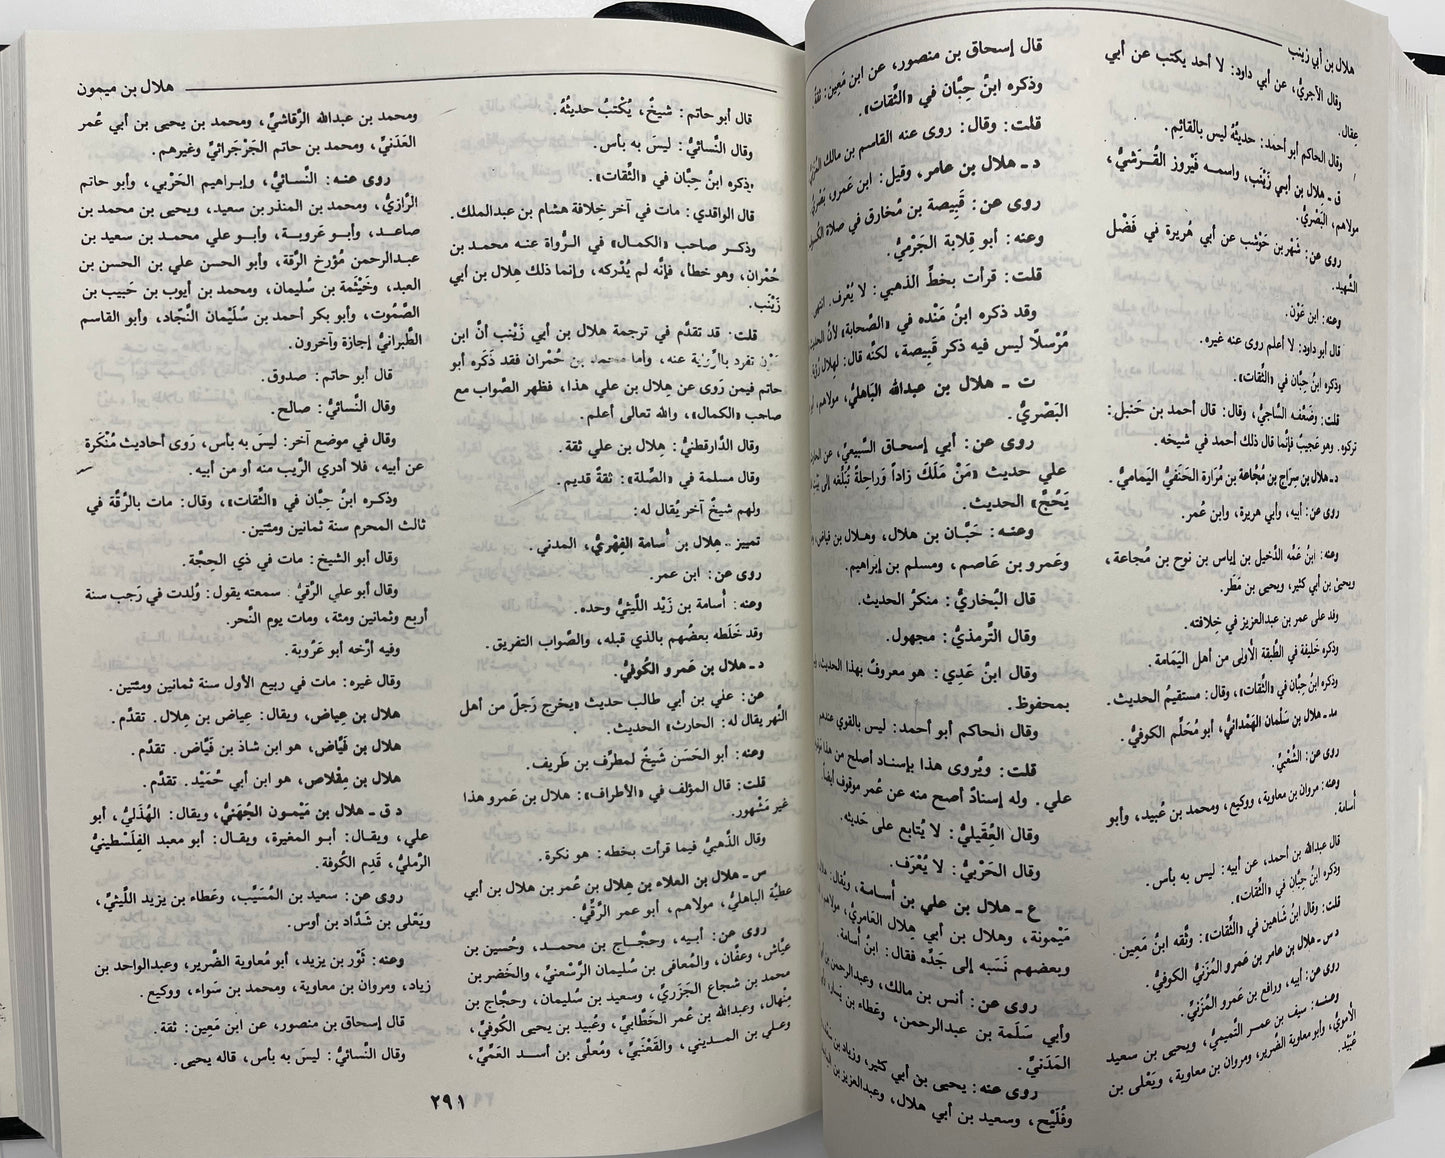 هلال بن أبي زينب
وقال الآجريُّ، عن أبي داود: لا أحد يكتب عن أبي
عِقال.
وقال الحاكم أبو أحمد: حديثُهُ ليس بالقائم.
ق ـ هلال بن أبي زَيْنَب، واسمه فَيْروز القُرَشيُّ،
مولاهم، البَصْريُّ.
روى عن: شَهْر بن حَوْشب عن أبي هُريرة في فَضْل
الشَّهيد.
وعنه: ابن عَوْن.
قال أبو داود: لا أعلم روى عنه غيره.
وذكره ابنُ حِبَّان في «الثِّقات».
قلت: وضَعَّفه السَّاجِيُّ، وقال: قال أحمد بن حَنبل:
تركوه. وهو عَجيبٌ فإنَّما قال ذلك أحمد في شيخه.
د ـ هلال بن سِراج بن مُجَّاعة بن مُرَارة الحَنَفيُّ اليَماميُّ.
روى عن: أبيه، وأبي هريرة، وابن عُمر.
وعنه: ابنُ عَمِّه الدَّخيل بن إياس بن نوح بن مُجاعة،
ويحيى بن أبي كثير، ويحيى بن مَطَر.
وفد على عمر بن عبدالعزيز في خِلافته.
وذكره خَليفة في الطَّبقة الأولى من أهل اليَمَامة.
وذكره ابنُ حِبَّان في «الثِّقات»، وقال: مستقيمُ الحديث.
مد ـ هلال بن سَلْمان الهَمْدانيُّ، أبو مُحَلَّم الكوفيُّ.
روى عن: الشَّعْبيِّ.
وعنه: مروان بن معاوية، ووكيع، ومحمد بن عُبيد، وأبو
أسامة.
قال عبدالله بن أحمد، عن أبيه: ليس به بأس.
وذكره ابنُ حِبَّان في «الثِّقات».
قلت: وقال ابنُ شاهين في «الثِّقات»: وثَّقه ابنُ مَعين.
د س ـ هلال بن عامر بن عَمرو المُزَنيُّ الكوفيُّ.
روى عن: أبيه، ورافع بن عَمرو المُزَنيِّ.
وعنه: سيف بن عمر التَّميميُّ، ويحيى بن سعيد
الأمويُّ، وأبو معاوية الضَّرير، ومروان بن معاوية، ويَعْلى بن
عُبَيْد.
قال إسحاق بن منصور، عن ابن مَعِين: ثقةٌ
وذكره ابنُ حِبَّان في «الثِّقات».
قلت: وقال: روى عنه القاسم بن مالك المُزَنيُّ
د ـ هلال بن عامر، وقيل: ابن عَمرو، بَصْريٌّ
روى عن: قَبِيصة بن مُخارق في صلاة الكسوف
وعنه: أبو قِلابة الجَرْميُّ.
قلت: قرأت بخطِّ الذهبي: لا يُعْرف. انتهى
وقد ذكره ابنُ مَنْده في «الصَّحابة» لأنَّ الحديث
مُرْسلًا ليس فيه ذكر قَبِيصة، لكنَّه قال: لهلال رُؤية
ت ـ هلال بن عبدالله الباهليُّ، مولاهم، أبو
البَصْريُّ.
روى عن: أبي إسحاق السَّبيعيِّ، عن الحارث
علي حديث «مَنْ مَلَكَ زَاداً وَراحِلةً تُبَلِّغه إلى بيت
يَحُجَّ» الحديث.
وعنه: حَبَّان بن هلال، وهلال بن فياض
وعَمرو بن عَاصم، ومسلم بن إبراهيم.
قال البُخاريُّ: منكرُ الحديث.
وقال التِّرمذيُّ: مجهول.
وقال ابنُ عَدِي: هو معروفٌ بهذا الحديث،
بمحفوظ.
وقال الحاكم أبو أحمد: ليس بالقوي عندهم
قلت: ويُروى هذا بإسناد أصلح من هذا
علي. وله إسنادٌ أصح منه عن عُمر موقوف أيضاً.
وقال العُقَيليُّ: لا يُتابع على حَديثه.
وقال الحَرْبيُّ: لا يُعْرَف.
ع ـ هلال بن علي بن أسامة، ويُقال:
مَيْمونة، وهلال بن أبي هِلال العَامريُّ، مولاهم
وبعضهم نَسَبه إلى جَدِّه فقال: ابنُ أسامة.
روى عن: أنس بن مالك، وعبدالرحمن بن
وأبي سَلَمة بن عبدالرحمن، وعَطاء بن يسار،
المَدَنيِّ.
روى عنه: يحيى بن أبي كثير، وزياد بن
وفُلَيْح، وسعيد بن أبي هلال، وعبدالعزيز بن
هلال بن ميمون
قال أبو حاتم: شيخٌ، يُكْتبُ حديثُهُ.
وقال النَّسائيُّ: ليسَ به بأس.
وذكره ابنُ حِبَّان في «الثِّقات».
قال الواقدي: مات في آخر خِلافة هشام بن عبدالملك.
وذكر صاحب «الكمال» في الرُّواة عنه محمد بن
حُمْران، وهو خطأ، فإنَّه لم يُدْركه، وإنما ذلك هِلال بن أبي
زَيْنَب.
قلت: قد تقدَّم في ترجمة هلال بن أبي زَيْنب أنَّ ابن
عَوْن تفرد بالرِّواية عنه، وأما محمد بن حُمْران فقد ذَكَره أبو
حاتم فيمن رَوى عن هِلال بن علي هذا، فظهر الصَّواب مع
صاحب «الكمال»، والله تعالى أعلم.
وقال الدَّارقطنيُّ: هِلال بن علي ثقة.
وقال مسلمة في «الصِّلة»: ثقةٌ قديم.
ولهم شيخٌ آخر يُقال له:
تمييز ـ هِلال بن أسامة الفِهْريُّ، المدني.
روى عن: ابن عمر.
وعنه: أُسامة بن زَيْد اللَّيثيُّ وحده.
وقد خَلَطه بعضُهم بالذي قبله، والصَّواب التفريق.
د ـ هلال بن عَمرو الكُوفيُّ.
عن: علي بن أبي طالب حديث «يخرج رَجلٌ من أهل
النَّهر يقال له: الحارث» الحديث.
وعنه: أبو الحَسَن شَيخٌ لمطرِّف بن طَريف.
قلت: قال المؤلف في «الأطراف»: هلال بن عَمرو هذا
غير مَشْهور.
وقال الذَّهبيُّ فيما قرأت بخطه: هو نكرة.
س ـ هلال بن العلاء بن هِلال بن عُمر بن هلال بن أبي
عطيَّة الباهليُّ، مولاهم، أبو عمر الرَّقِّيُّ.
روى عن: أبيه، وحجَّاج بن محمد، وحُسين بن
عيَّاش، وعفَّان، والمُعافى بن سُليمان الرَّسْعنيِّ، والخَضر بن
محمد بن شجاع الجَزَريِّ، وسعيد بن سُليمان، وحجَّاج بن
مِنْهال، وعبدالله بن عُمر الخَطَّابيِّ، وعُبيد بن يحيى الكُوفيِّ،
وعلي بن المديني، والقَعْنَبيِّ، ومُعلَّى بن أسد العَمِّيِّ،
ومحمد بن عبدالله الرَّقاشيِّ، ومحمد بن يحيى بن أبي عُمر
العَدَنيِّ، ومحمد بن حاتم الجَرْجَرائيِّ وغيرهم.
روى عنه: النَّسائيُّ، وإبراهيم الحَرْبي، وأبو حاتم
الرَّازيُّ، ومحمد بن المنذر بن سعيد، ويحيى بن محمد بن
صاعد، وأبو عَروبة، وأبو علي محمد بن سعيد بن
عبدالرحمن مُؤرخ الرَّقة، وأبو الحسن علي بن الحسن بن
العبد، وخَيْثمة بن سُليمان، ومحمد بن أيوب بن حَبيب بن
الصَّمُوت، وأبو بكر أحمد بن سُلَيْمان النَّجَّاد، وأبو القاسم
الطَّبرانيُّ إجازة وآخرون.
قال أبو حاتم: صدوق.
وقال النَّسائيُّ: صالح.
وقال في موضع آخر: ليسَ به بأس، رَوى أحاديث مُنْكَرة
عن أبيه، فلا أدري الرَّيب منه أو من أبيه.
وذكره ابنُ حِبَّان في «الثِّقات»، وقال: مات بالرَّقة في
ثالث المحرم سنة ثمانين ومئتين.
وقال أبو الشيخ: مات في ذي الحِجَّة.
وقال أبو علي الرَّقيُّ: سمعته يقول: وُلدت في رَجب سنة
أربع وثمانين ومئة، ومات يوم النَّحر.
وفيه أرَّخه أبو عَرُوبة.
وقال غيره: مات في ربيع الأول سنة ثمانين ومئتين.
هلال بن عِياض، ويقال: عِياض بن هِلال. تقدَّم.
هلال بن فَيَّاض، هو ابن شاذ بن فَيَّاض. تقدَّم.
هلال بن مِقْلاص، هو ابن أبي حُمَيْد. تقدَّم.
د ق ـ هلال بن مَيْمون الجُهَنيُّ، ويقال: الهُذَليُّ، أبو
علي، ويقال: أبو المغيرة، ويقال: أبو معبد الفِلَسْطينيُّ
الرَّمليُّ، قَدِم الكُوفة.
روى عن: سعيد بن المُسَيِّب، وعَطاء بن يزيد اللَّيثيِّ،
ويَعْلى بن شَدَّاد بن أوس.
وعنه: ثَوْر بن يزيد، أبو مُعاوية الضَّرير، وعبدالواحد بن
زياد، ومروان بن معاوية، ومحمد بن سَواء، ووكيع.
قال إسحاق بن منصور، عن ابن مَعِين: ثقة.
وقال النَّسائيُّ: ليسَ به بأس، قاله يحيى.
٢٩١